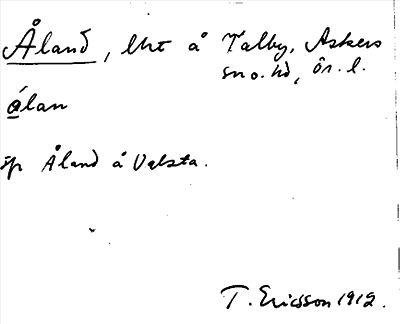 Åland, lht å Talby, Askers
sn o. hd, ör. l.
ålan
äp Åland å Valsta.
T. Ericsson 1912.